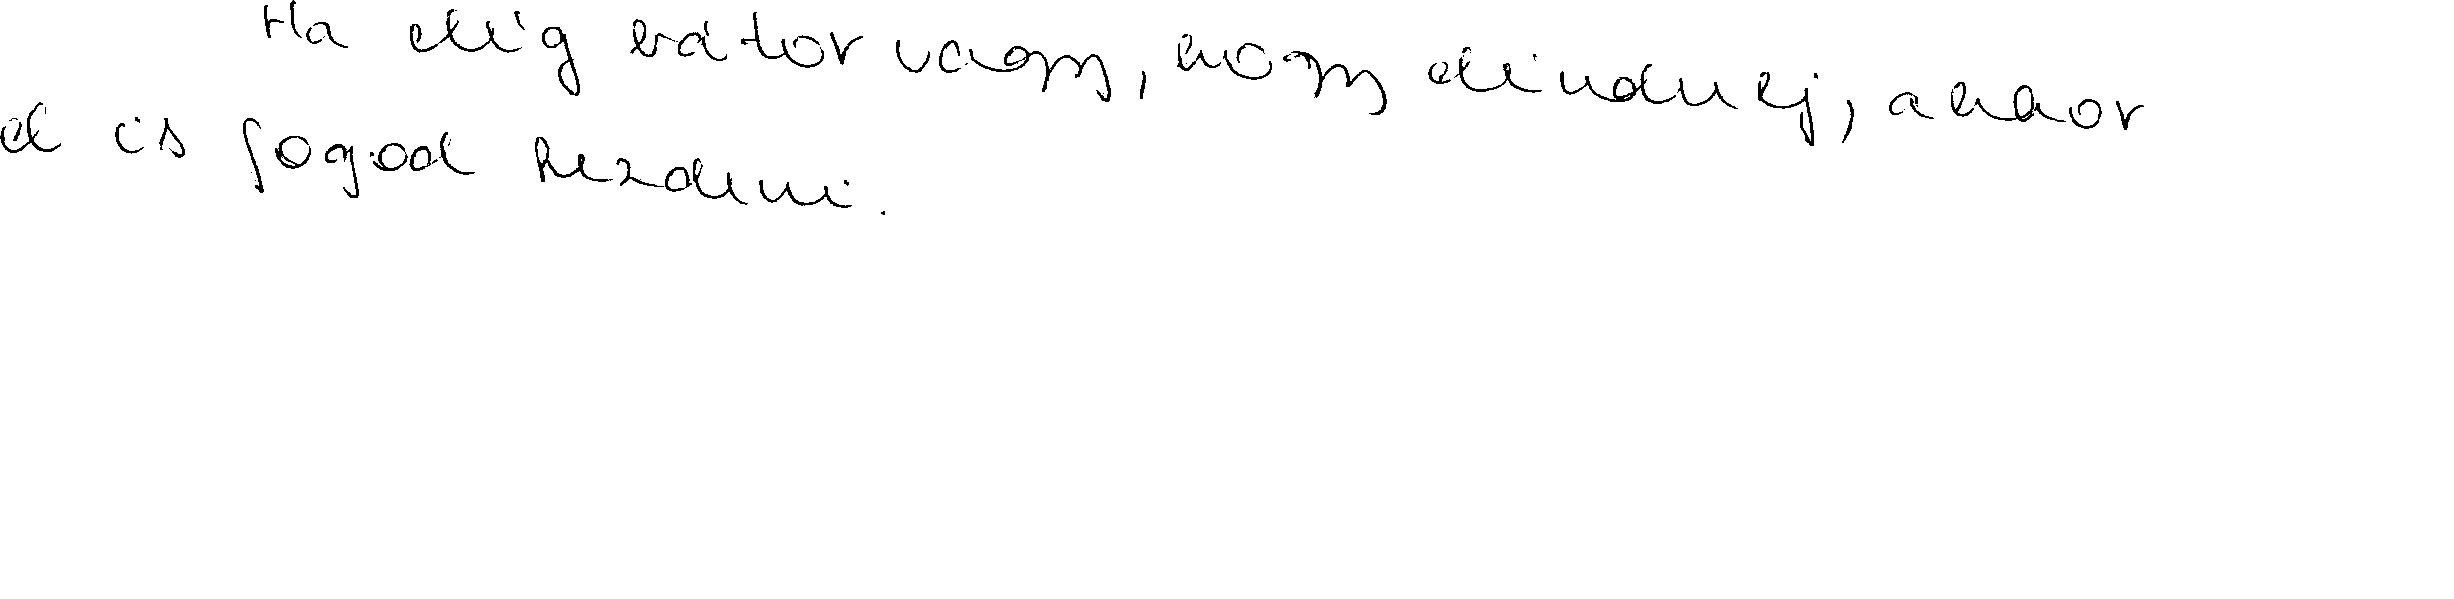 Ha elég bátor vagy, hogy elindulj, akkor
el is fogod kezdeni.